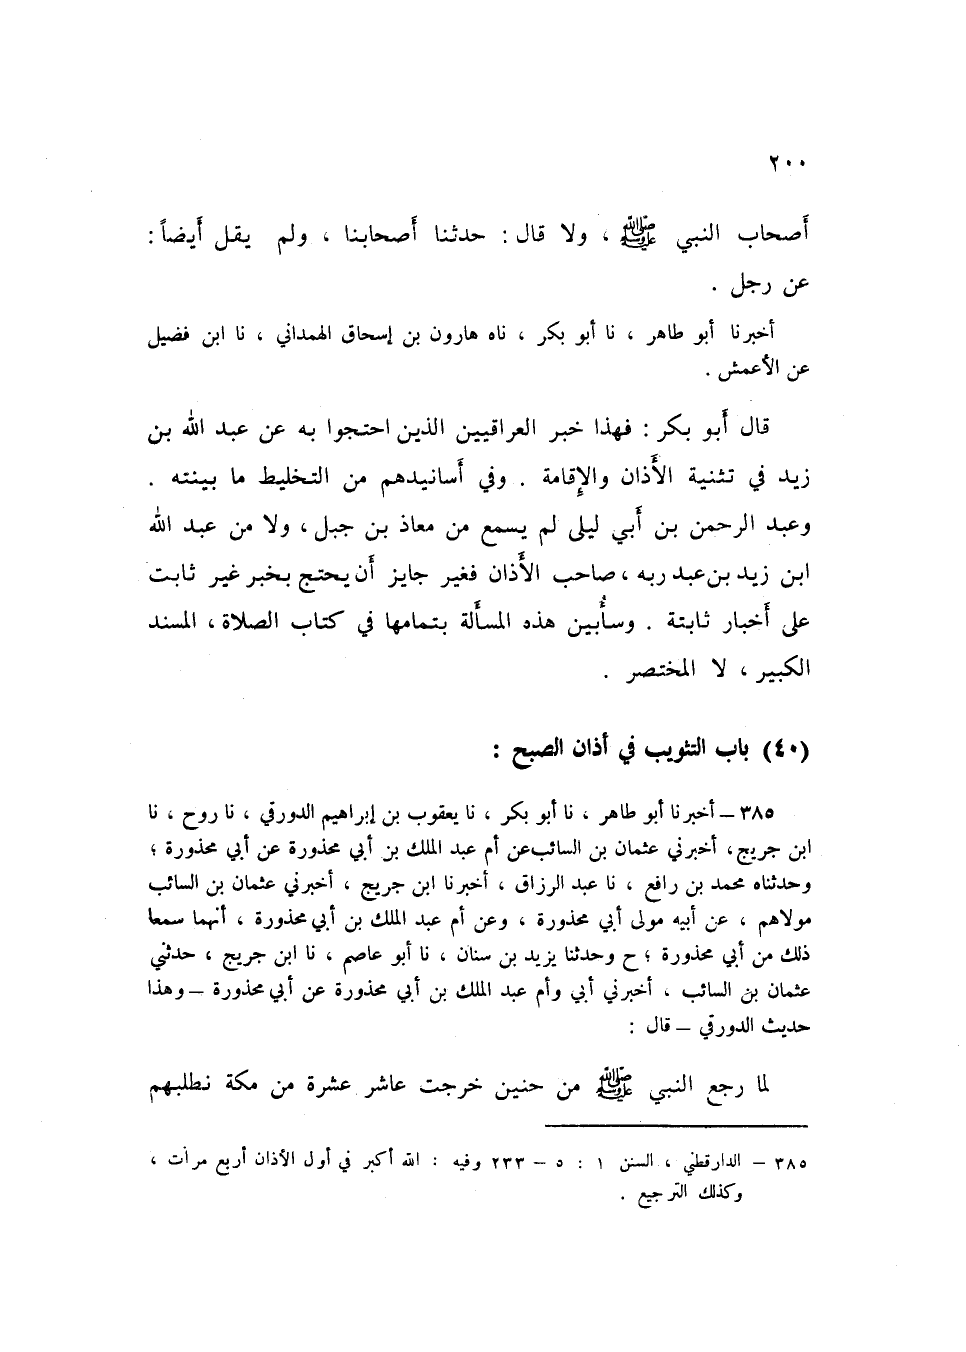 ٢٠٠
أَصحاب النبي ﷺ ، ولا قال : حدثنا أَصحابنا ، ولم يقل أَيضاً :
عن رجل .
أخبرنا أبو طاهر ، نا أبو بكر ، ناه هارون بن إسحاق الهمداني ، نا ابن فضيل
عن الأعمش .
قال أَبو بكر : فهذا خبر العراقيين الذين احتجوا به عن عبد الله بن
زيد في تثنية الأَذان والإِقامة . وفي أَسانيدهم من التخليط ما بينته .
وعبد الرحمن بن أَبي ليلى لم يسمع من معاذ بن جبل ، ولا من عبد الله
ابن زيد بن عبد ربه ، صاحب الأَذان فغير جايز أَن يحتج بخبر غير ثابت
على أَخبار ثابتة . وسأُبين هذه المسأَلة بتمامها في كتاب الصلاة ، المسند
الكبير ، لا المختصر .
(٤٠) باب التثويب في أذان الصبح :
٣٨٥ – أخبرنا أبو طاهر ، نا أبو بكر ، نا يعقوب بن إبراهيم الدورقي ، نا روح ، نا
ابن جريج ، أخبرني عثمان بن السائب عن أم عبد الملك بن أبي محذورة عن أبي محذورة ؛
وحدثناه محمد بن رافع ، نا عبد الرزاق ، أخبرنا ابن جريج ، أخبرني عثمان بن السائب
مولاهم ، عن أبيه مولى أبي محذورة ، وعن أم عبد الملك بن أبي محذورة ، أنهما سمعا
ذلك من أبي محذورة ؛ ح وحدثنا يزيد بن سنان ، نا أبو عاصم ، نا ابن جريج ، حدثني
عثمان بن السائب ، أخبرني أبي وأم عبد الملك بن أبي محذورة عن أبي محذورة – وهذا
حديث الدورقي – قال :
لما رجع النبي ﷺ من حنين خرجت عاشر عشرة من مكة نطلبهم
٣٨٥ – الدارقطني ، السنن ١ : ٥ – ٢٣٣ وفيه : الله أكبر في أول الأذان أربع مرات ،
وكذلك الترجيع .